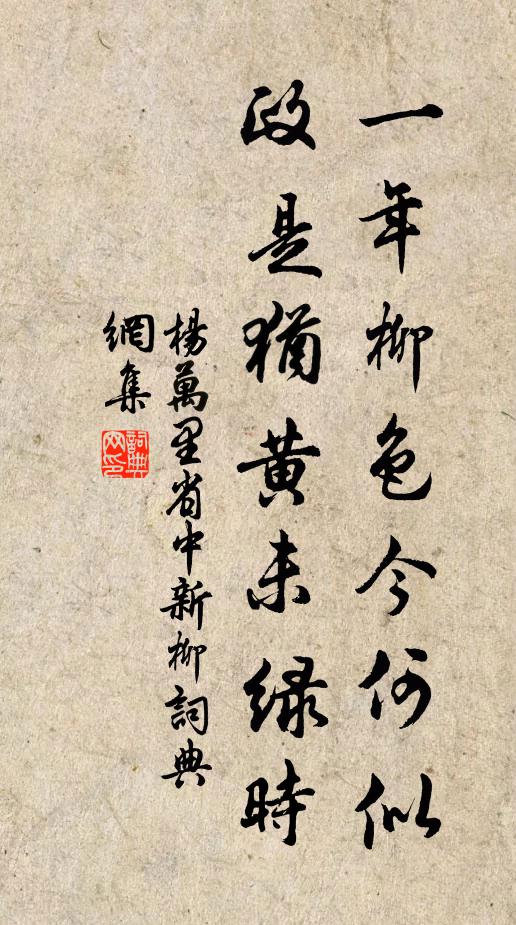 一年柳色今何似
政是猶黃未綠時
楊萬里省中新柳詞典
網集
詞典網印